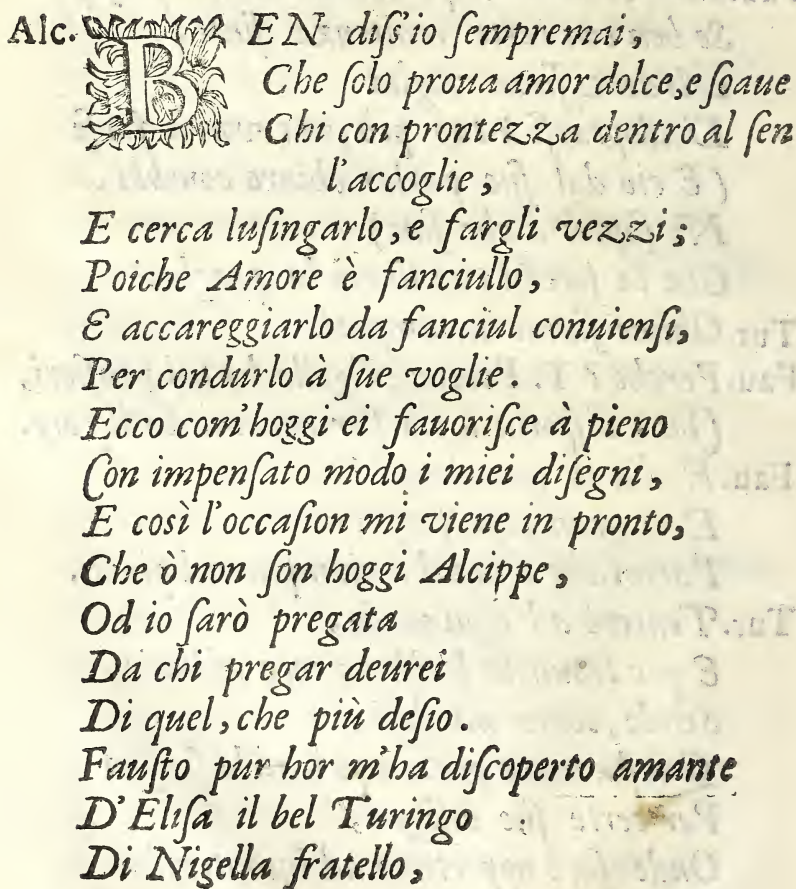 Alc. BEN diſs'io ſempremai,
Che ſolo proua amor dolce, e ſoaue
Chi con prontezza dentro al ſen
l'accoglie,
E cerca luſingarlo, e fargli vezzi;
Poiche Amore è fanciullo,
E accareggiarlo da fanciul conuienſi,
Per condurlo à ſue voglie.
Ecco com'hoggi ei fauoriſce à pieno
Con impenſato modo i miei diſegni,
E così l'occaſion mi viene in pronto,
Che ò non ſon hoggi Alcippe,
Od io ſarò pregata
Da chi pregar deurei
Di quel, che più deſio.
Fauſto pur hor m'ha diſcoperto amante
D'Eliſa il bel Turingo
Di Nigella fratello,